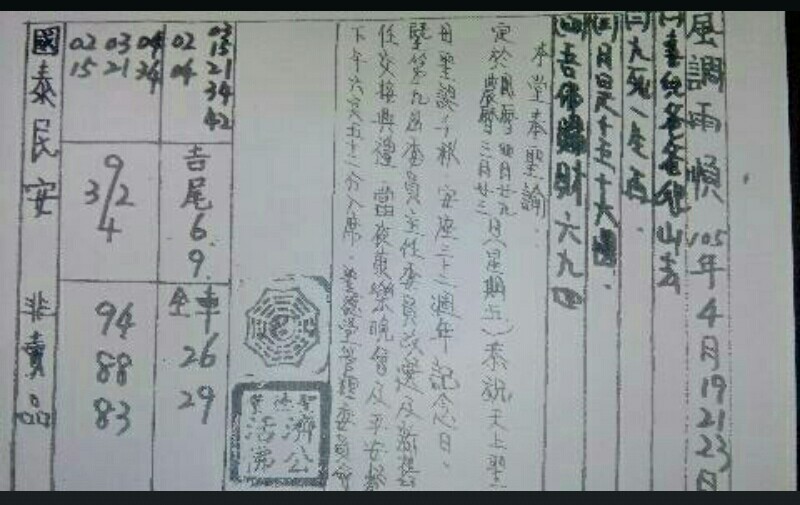 風調雨順 105年4月19 21 23日
(一)
(二)九死一生
(三)月是十五十六
(四)吾佛賜財六九四
本堂奉聖諭
定於國曆四月廿九 農曆三月廿三日(星期五)恭祝天上聖
母聖誕千秋 安座三十二週年記念日。
暨第九屆委員主任委員改選及新舊
任交接典禮 當夜康樂晚會及平安
下午六六五十二分入席 聖德堂管理委員會
聖德堂
濟公
活佛
03
15
02 21
04 34
42
吉尾
6.
9.
全車
26
29
02 03 04
15 21 34
9
3/2
4
94
88
83
國泰民安 非賣品